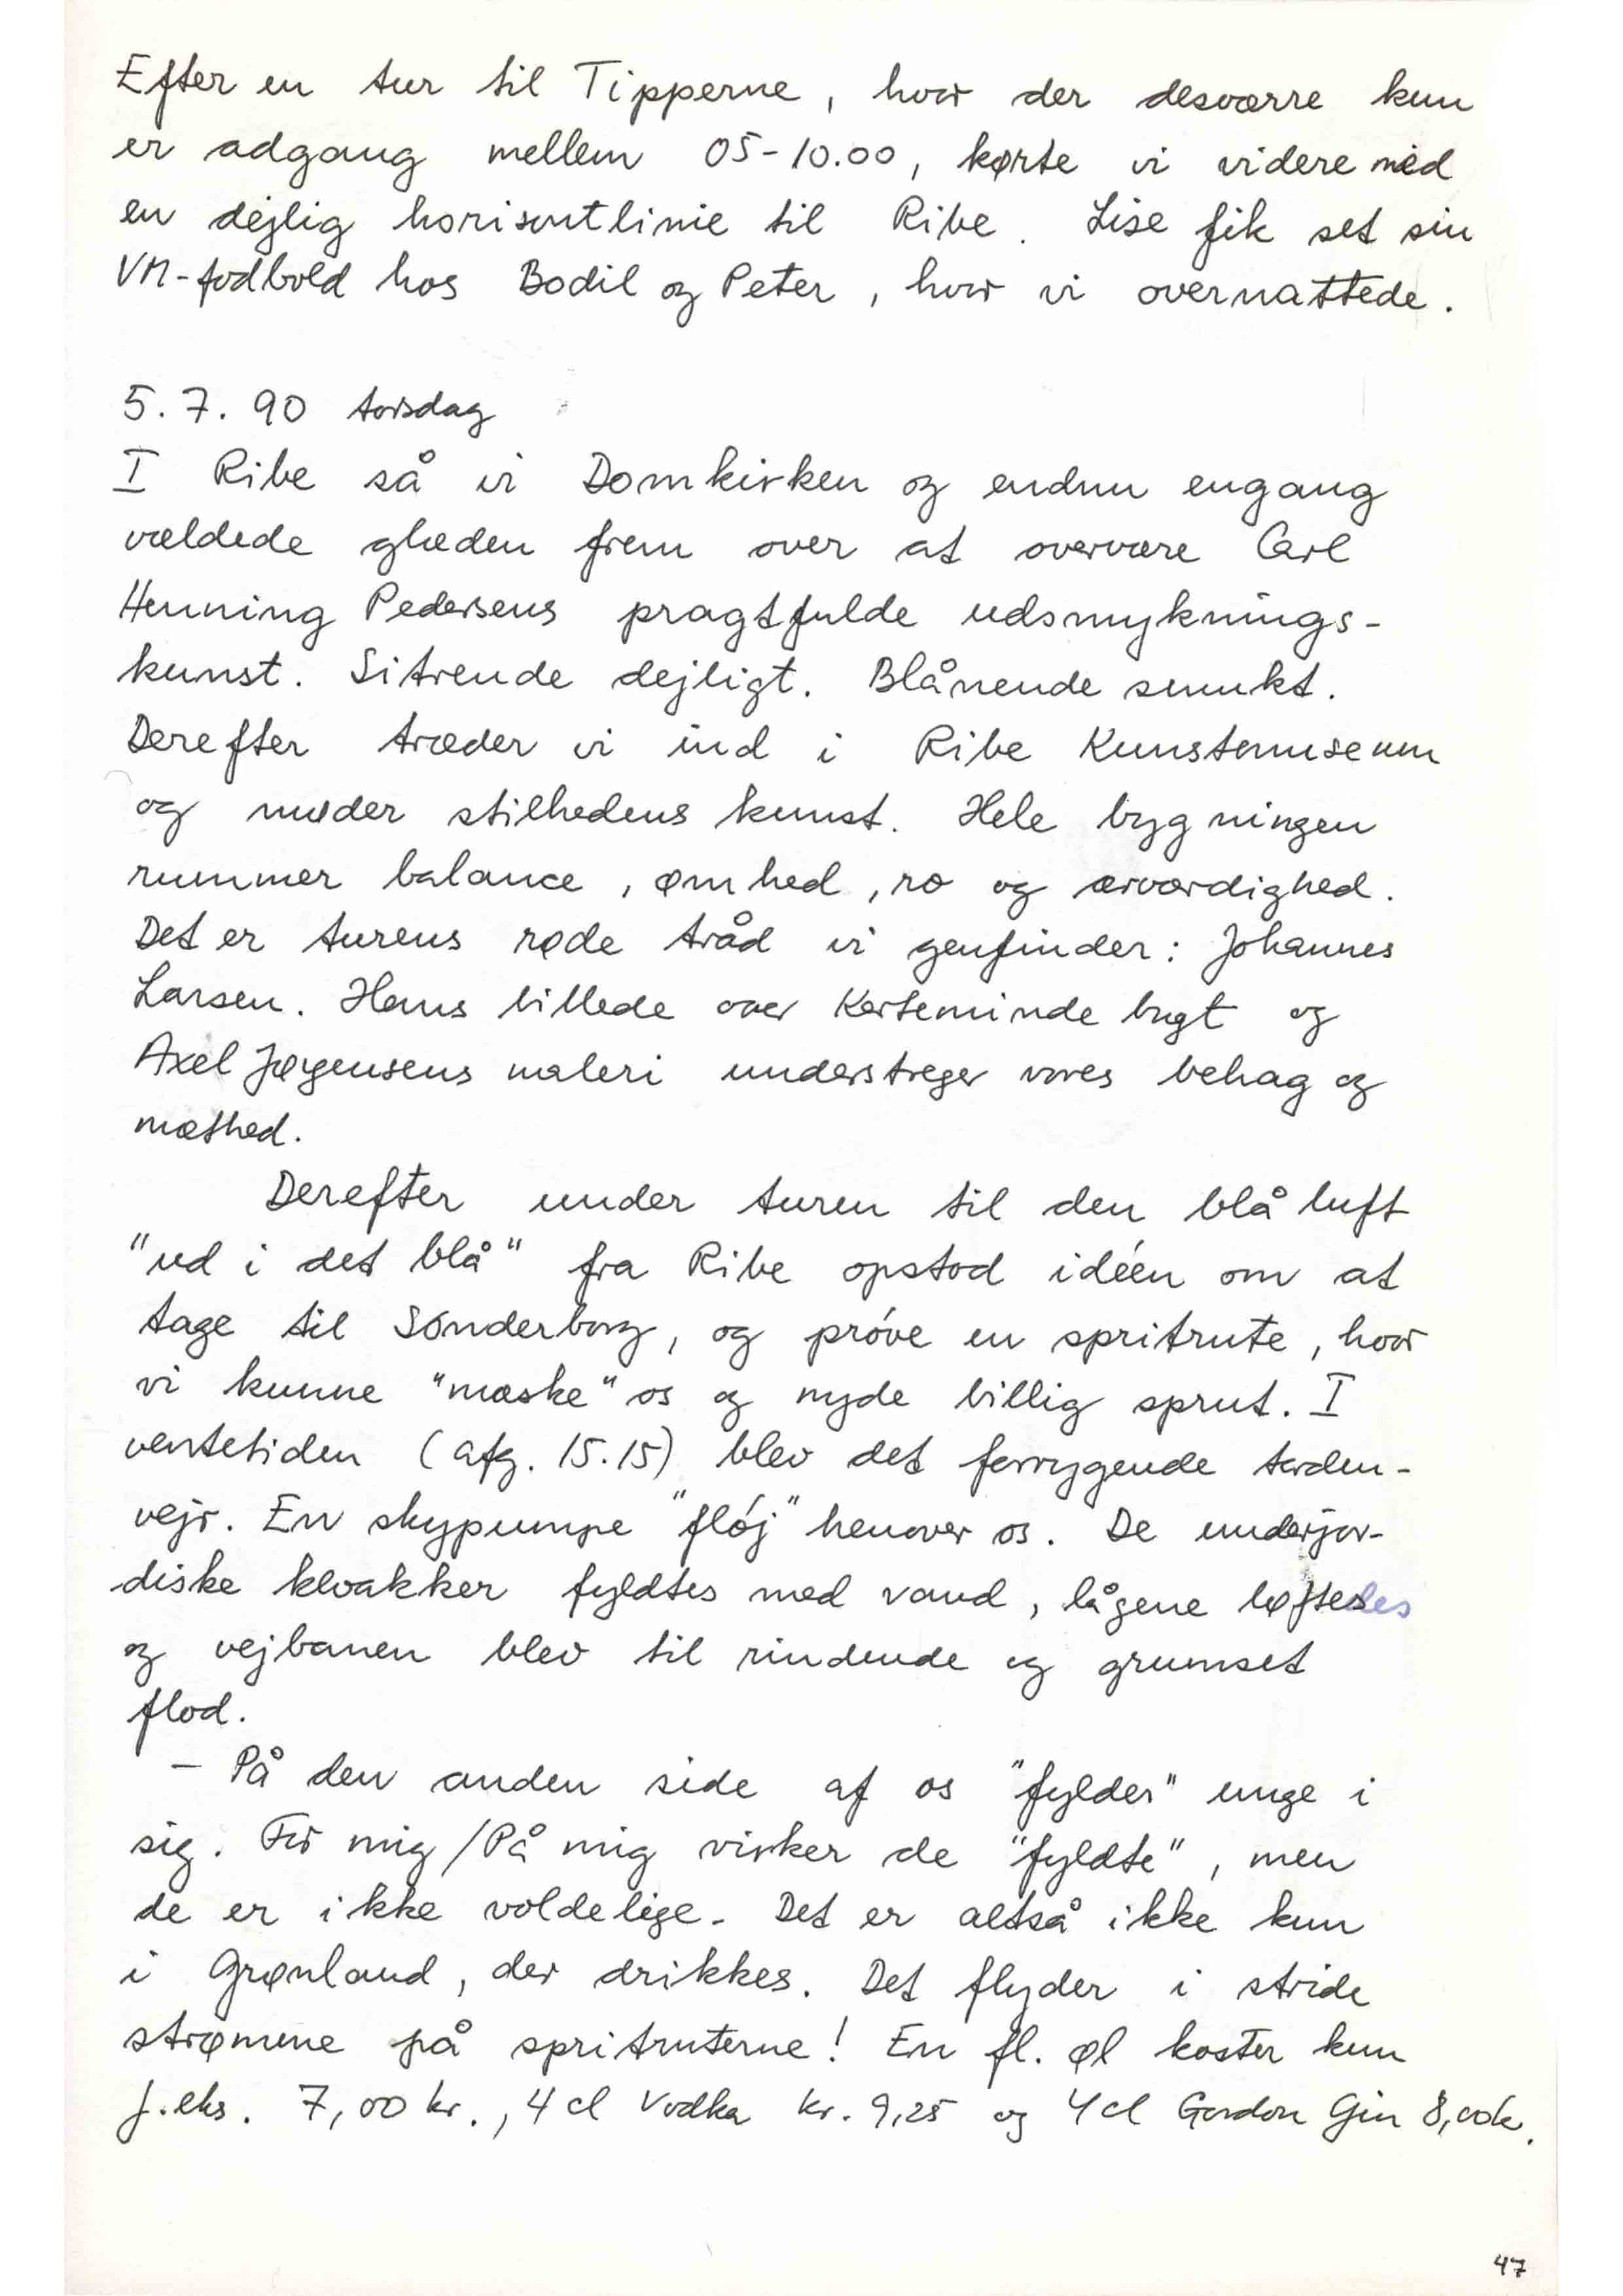 Efter en tur til Tipperne, hvor der desværre kun
er adgang mellem 05-10.00, kørte vi videre med
en dejlig horisontlinie til Ribe. Lise fik set sin
VM-fodbold hos Bodil og Peter, hvor vi overnattede.
5.7.90 torsdag
I Ribe så vi Domkirken og endnu engang
vældede glæden frem over at overvære Carl
Henning Pedersens pragtfulde udsmyknings-
kunst. Sitrende dejligt. Blånende smukt.
Derefter træder vi ind i Ribe Kunstmuseum
og møder stilhedens kunst. Hele bygningen
rummer balance, ømhed, ro og ærværdighed.
Det er turens røde tråd vi genfinder: Johannes
Larsen. Hans billede over Kerteminde bugt og
Axel Jørgensens maleri understreger vores behag og
mæthed.
Derefter under turen til den blå luft
"ud i det blå" fra Ribe opstod idéen om at
tage til Sónderborg, og próve en spritrute, hvor
vi kunne "mæske" os og nyde billig sprut. I
ventetiden (afg. 15.15) blev det forrygende torden-
vejr. En skypumpe "flój" henover os. De underjor-
diske kloakker fyldtes med vand, lågene løftedes
og vejbanen blev til rindende og grumset
flod.
- På den anden side af os "fylder" unge i
sig. For mig / På mig virker de "fyldte", men
de er ikke voldelige. Det er altså ikke kun
i Grønland, der drikkes. Det flyder i stride
strømme på spritruterne! En fl. øl koster kun
f.eks. 7,00 kr., 4 cl Vodka kr. 9,25 og 4 cl Gordon Gin 8,00k.
47